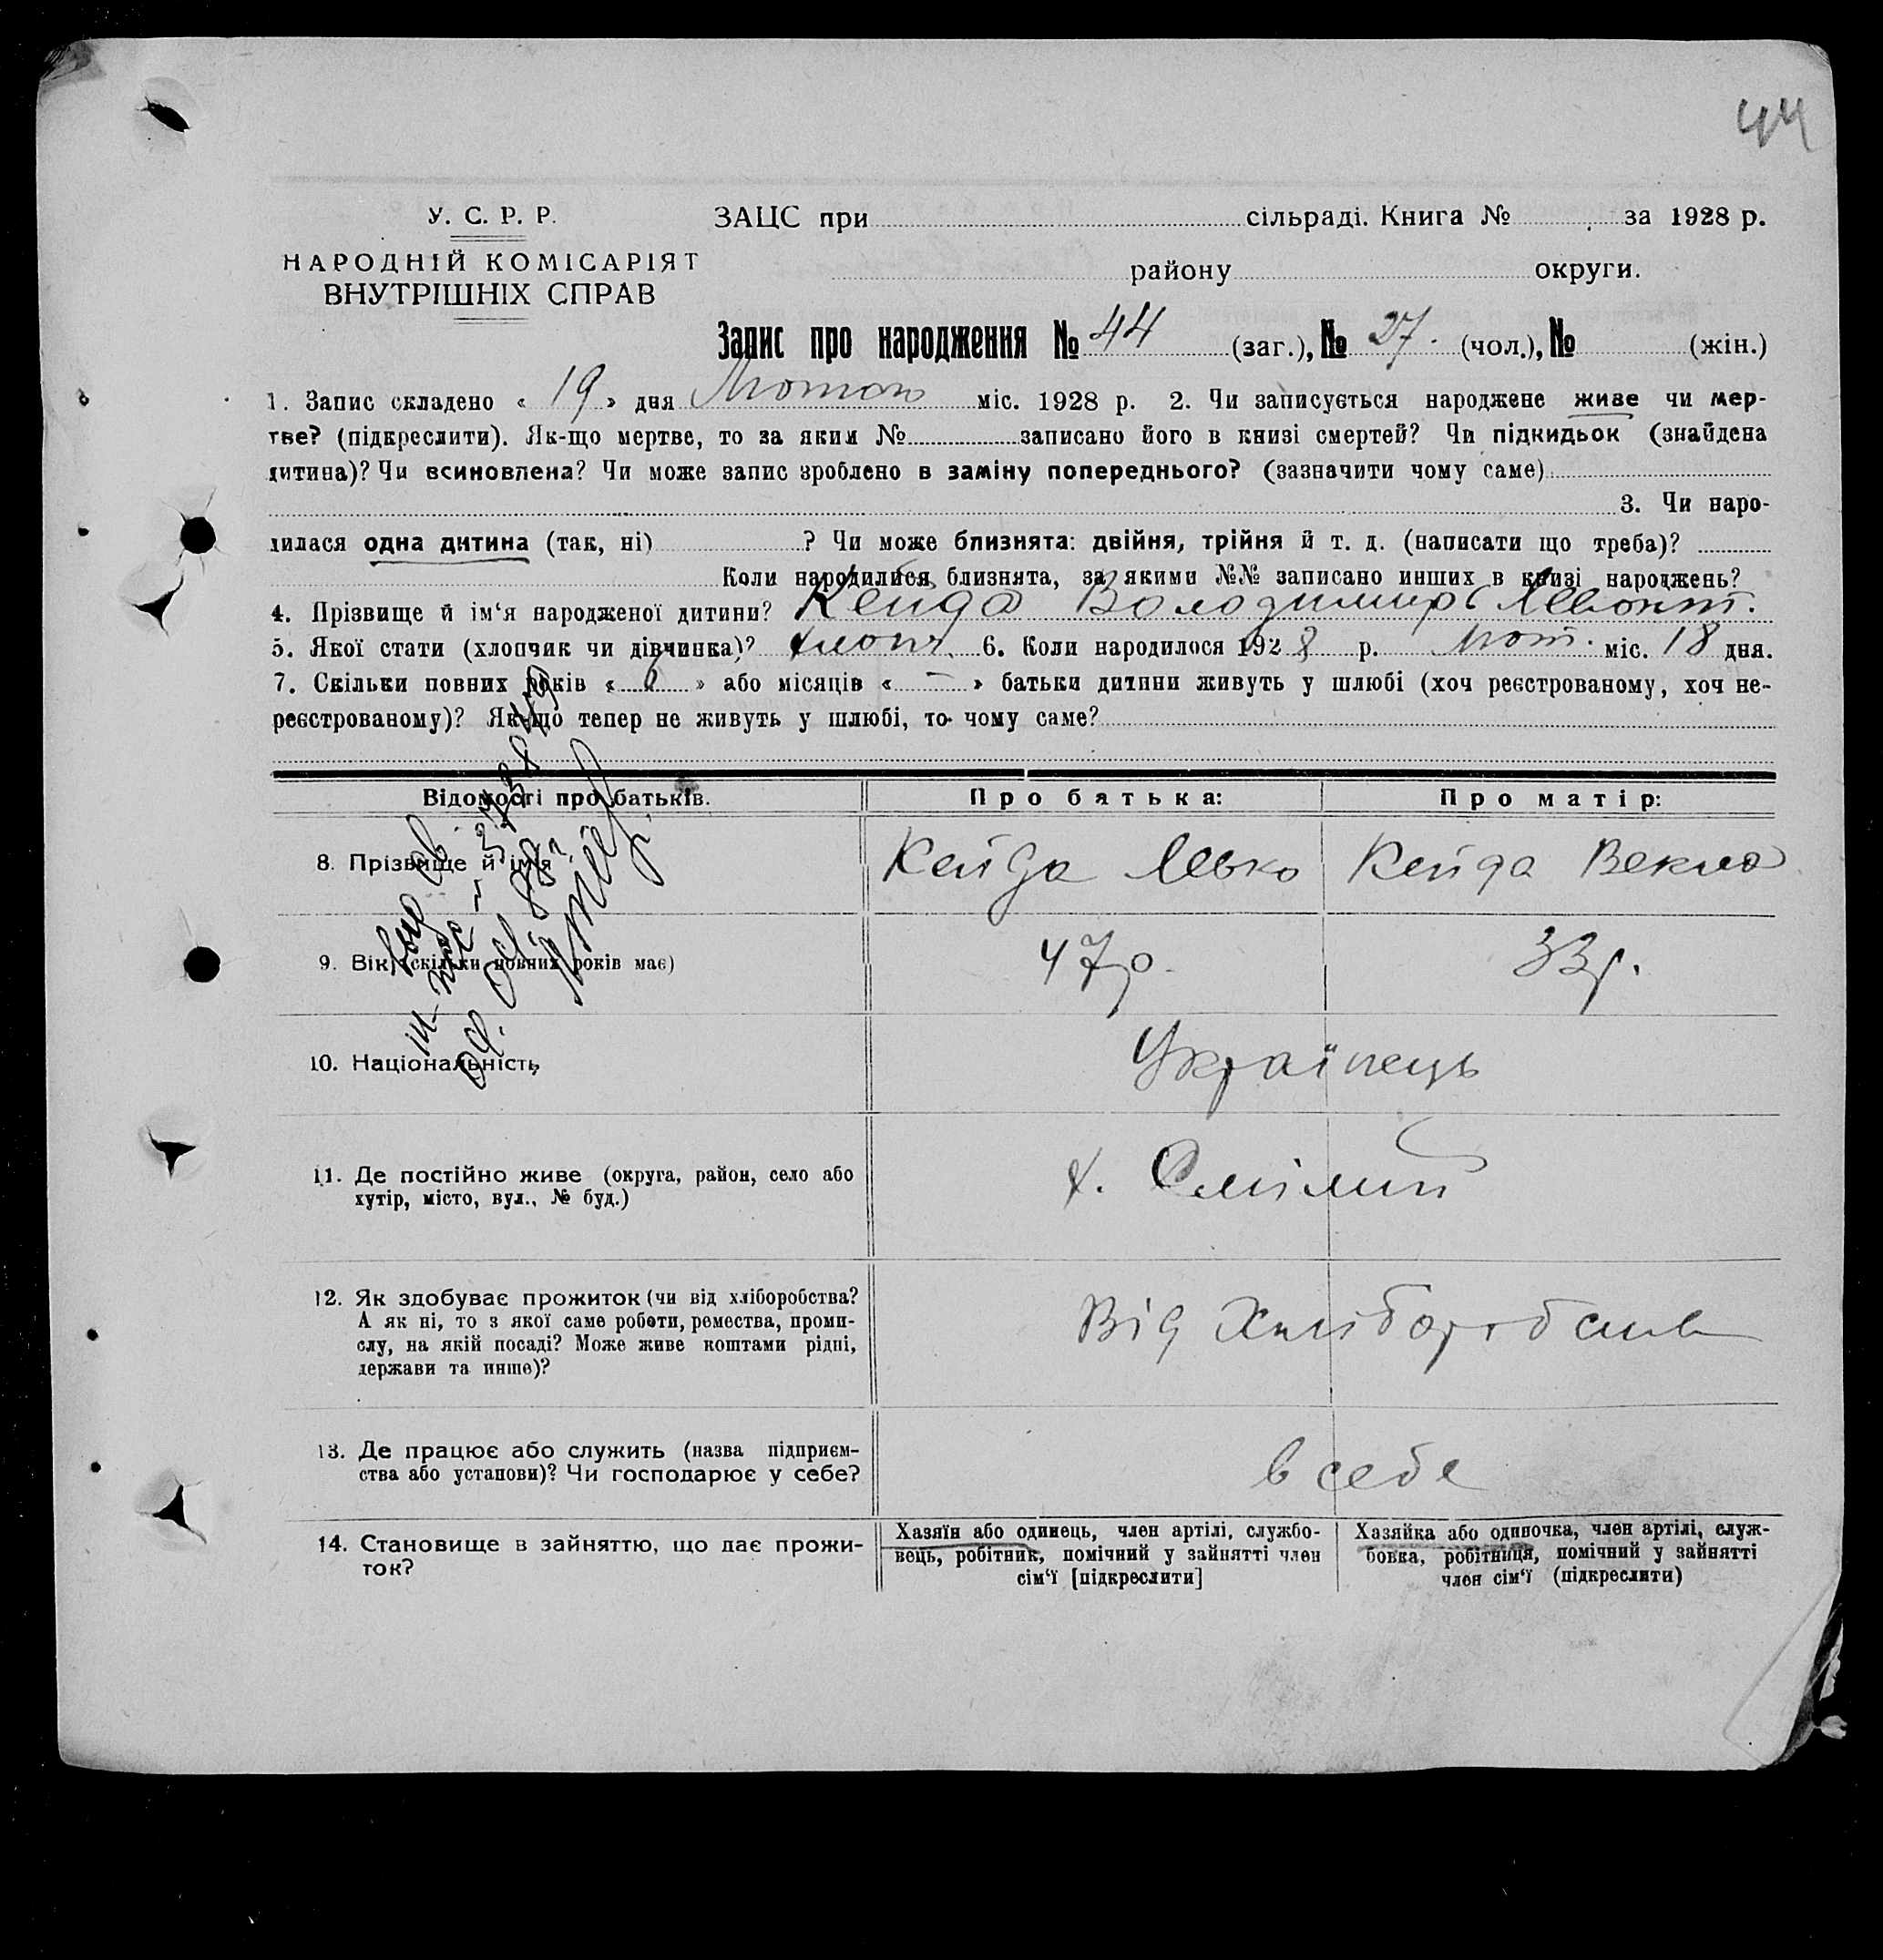 44
У. С. Р. Р.
НАРОДНІЙ КОМІСАРІЯТ
ВНУТРІШНІХ СПРАВ
ЗАЦС при сільраді. Книга № за 1928 р.
району округи.
Запис про народження № 44 (заг.), № 27. (чол.), № (жін.)
1. Запис складено « 19 » дня Лютого міс. 1928 р. 2. Чи записується народжене живе чи мер-
тве? (підкреслити). Як-що мертве, то за яким № записано його в книзі смертей? Чи підкидьок (знайдена
дитина)? Чи всиновлена? Чи може запис зроблено в заміну попереднього? (зазначити чому саме)
3. Чи наро-
дилася одна дитина (так, ні) ? Чи може близнята: двійня, трійня й т. д. (написати що треба)?
Коли народилися близнята, за якими №№ записано инших в книзі народжень?
4. Прізвище й ім‘я народженої дитини? Кейда Володимир Левонт.
5. Якої стати (хлопчик чи дівчинка)? хлопч. 6. Коли народилося 1928 р. Лют. міс. 18 дня.
7. Скільки повних років « » або місяців « — » батьки дитини живуть у шлюбі (хоч реєстрованому, хоч не-
реєстрованому)? Як-що тепер не живуть у шлюбі, то чому саме?
Відомості про батьків. Про батька: Про матір:
8. Прізвище й ім‘я Кейда Левко Кейда Векла
9. Вік (скільки повних років має) 47р. 33р.
10. Національність Українець
11. Де постійно живе (округа, район, село або
хутір, місто, вул., № буд.)
х. Смілий
12. Як здобуває прожиток (чи від хліборобства?
А як ні, то з якої саме роботи, ремества, проми-
слу, на якій посаді? Може живе коштами рідні,
держави та инше)?
Від Хліборобств
13. Де працює або служить (назва підприєм-
ства або установи)? Чи господарює у себе?
в себе
14. Становище в зайняттю, що дає прожи-
ток?
Хазяїн або одинець, член артілі, службо-
вець, робітник, помічний у зайнятті член
сім‘ї [підкреслити]
Хазяйка або одиночка, член артілі, служ-
бовка, робітниця, помічний у зайнятті
член сім‘ї (підкреслити)